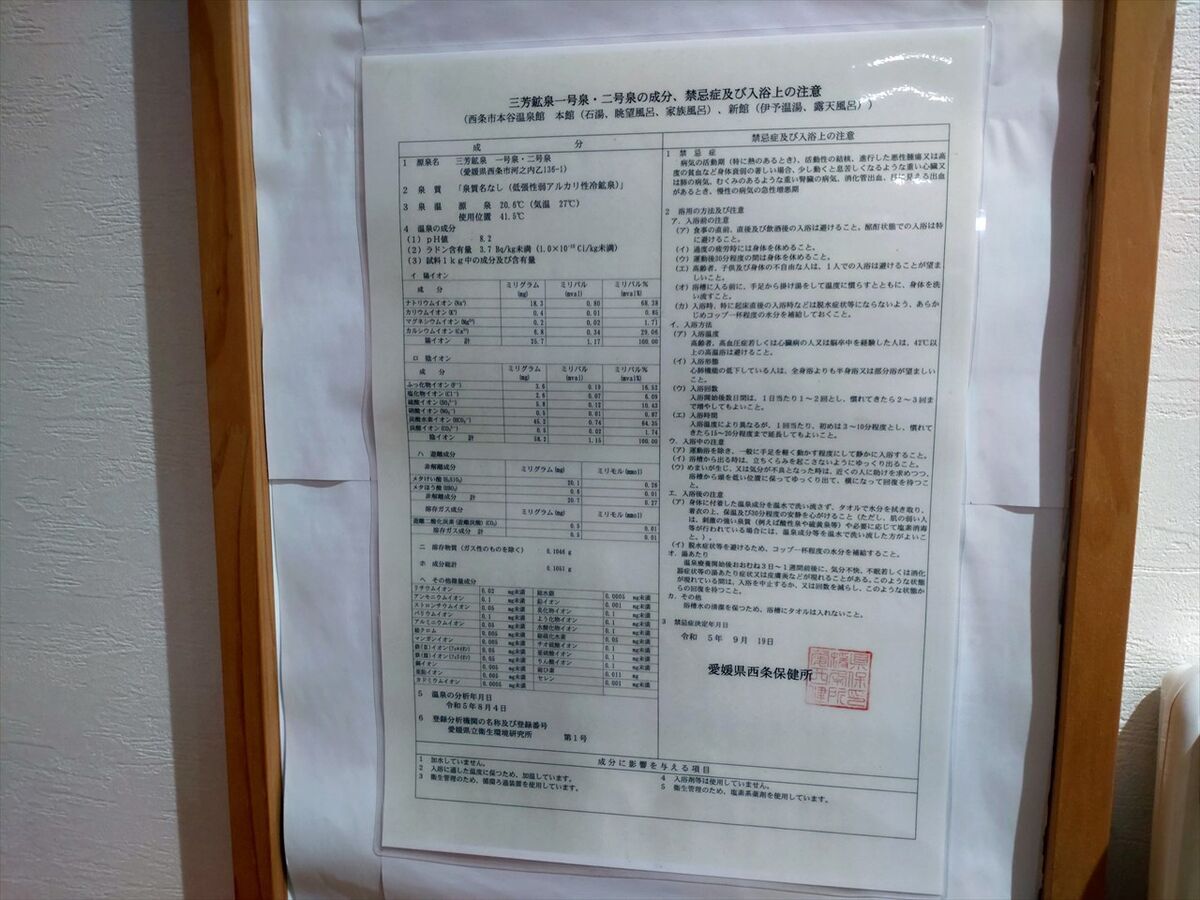 三芳鉱泉一号泉・二号泉の成分、禁忌症及び入浴上の注意
(西条市本谷温泉館 本館(石湯、眺望風呂、家族風呂)、新館(伊予温湯、露天風呂))
成 分
1 源泉名 三芳鉱泉 一号泉・二号泉
(愛媛県西条市河之内乙136-1)
2 泉 質 「泉質名なし(低張性弱アルカリ性冷鉱泉)」
3 泉 温 源 泉 20.6℃(気温 27℃)
使用位置 41.5℃
4 温泉の成分
(1)pH値 8.2
(2)ラドン含有量 3.7 Bq/kg未満
(3)試料1kg中の成分及び含有量
イ 陽イオン
成 分 ミリグラム(mg) ミリバル(mval) ミリバル%(mval%)
ナトリウムイオン(Na⁺) 18.3 0.80 68.38
カリウムイオン(K⁺) 0.4 0.01 0.85
マグネシウムイオン(Mg²⁺) 0.2 0.02 1.71
カルシウムイオン(Ca²⁺) 6.8 0.34 29.06
陽イオン 計 25.7 1.17 100.00
ロ 陰イオン
成 分 ミリグラム(mg) ミリバル(mval) ミリバル%(mval%)
ふっ化物イオン(F⁻) 3.6 0.19 16.52
塩化物イオン(Cl⁻) 2.6 0.07 6.09
硫酸イオン(SO₄²⁻) 5.8 0.12 10.43
硝酸イオン(NO₃⁻) 0.5 0.01 0.87
炭酸水素イオン(HCO₃⁻) 45.2 0.74 64.35
炭酸イオン(CO₃²⁻) 0.5 0.02 1.74
陰イオン 計 58.2 1.15 100.00
ハ 遊離成分
非解離成分 ミリグラム(mg) ミリモル(mmol)
メタけい酸(H₂SiO₃) 20.1 0.26
メタほう酸(HBO₂) 0.6 0.01
非解離成分 計 20.7 0.27
溶存ガス成分 ミリグラム(mg) ミリモル(mmol)
遊離二酸化炭素(遊離炭酸)(CO₂) 0.5 0.01
溶存ガス成分 計 0.5 0.01
ニ 溶存物質(ガス性のものを除く) 0.1046 g
ホ 成分総計 0.1051 g
ヘ その他微量成分
リチウムイオン 0.02 mg未満 総水銀 0.0005 mg未満
アンモニウムイオン 0.1 mg未満 鉛イオン 0.001 mg未満
ストロンチウムイオン 0.05 mg未満 臭化物イオン 0.1 mg未満
バリウムイオン 0.1 mg未満 よう化物イオン 0.1 mg未満
アルミニウムイオン 0.05 mg未満 水酸化物イオン 0.1 mg未満
総クロム 0.005 mg未満 硫化水素 0.05 mg未満
マンガンイオン 0.05 mg未満 チオ硫酸イオン 0.1 mg未満
鉄(Ⅱ)イオン 0.05 mg未満 亜硫酸イオン 0.1 mg未満
鉄(Ⅲ)イオン 0.05 mg未満 りん酸イオン 0.1 mg未満
銅イオン 0.005 mg未満 総ひ素 0.011 mg
亜鉛イオン 0.005 mg未満 セレン 0.001 mg未満
カドミウムイオン 0.0005 mg未満
5 温泉の分析年月日
令和5年8月4日
6 登録分析機関の名称及び登録番号
愛媛県立衛生環境研究所 第1号
禁忌症及び入浴上の注意
1 禁 忌 症
病気の活動期(特に熱のあるとき)、活動性の結核、進行した悪性腫瘍又は高
度の貧血など身体衰弱の著しい場合、少し動くと息苦しくなるような重い心臓又
は肺の病気、むくみのあるような重い腎臓の病気、消化管出血、目に見える出血
があるとき、慢性の病気の急性増悪期
2 浴用の方法及び注意
ア.入浴前の注意
(ア)食事の直前、直後及び飲酒後の入浴は避けること。酩酊状態での入浴は特
に避けること。
(イ)過度の疲労時には身体を休めること。
(ウ)運動後30分程度の間は身体を休めること。
(エ)高齢者、子供及び身体の不自由な人は、1人での入浴は避けることが望ま
しいこと。
(オ)浴槽に入る前に、手足から掛け湯をして温度に慣らすとともに、身体を洗
い流すこと。
(カ)入浴時、特に起床直後の入浴時などは脱水症状等にならないよう、あらか
じめコップ一杯程度の水分を補給しておくこと。
イ.入浴方法
(ア)入浴温度
高齢者、高血圧症若しくは心臓病の人又は脳卒中を経験した人は、42℃以
上の高温浴は避けること。
(イ)入浴形態
心肺機能の低下している人は、全身浴よりも半身浴又は部分浴が望ましい
こと。
(ウ)入浴回数
入浴開始後数日間は、1日当たり1~2回とし、慣れてきたら2~3回ま
で増やしてもよいこと。
(エ)入浴時間
入浴温度により異なるが、1回当たり、初めは3~10分程度とし、慣れて
きたら15~20分程度まで延長してもよいこと。
ウ.入浴中の注意
(ア)運動浴を除き、一般に手足を軽く動かす程度にして静かに入浴すること。
(イ)浴槽から出る時は、立ちくらみを起こさないようにゆっくり出ること。
(ウ)めまいが生じ、又は気分が不良となった時は、近くの人に助けを求めつつ、
浴槽から頭を低い位置に保ってゆっくり出て、横になって回復を待つこ
と。
エ.入浴後の注意
(ア)身体に付着した温泉成分を温水で洗い流さず、タオルで水分を拭き取り、
着衣の上、保温及び30分程度の安静を心がけること(ただし、肌の弱い人
は、刺激の強い泉質(例えば酸性泉や硫黄泉等)や必要に応じて塩素消毒
等が行われている場合には、温泉成分等を温水で洗い流した方がよいこ
と。)。
(イ)脱水症状等を避けるため、コップ一杯程度の水分を補給すること。
オ.湯あたり
温泉療養開始後おおむね3日~1週間前後に、気分不快、不眠若しくは消化
器症状等の湯あたり症状又は皮膚炎などが現れることがある。このような状態
が現れている間は、入浴を中止するか、又は回数を減らし、このような状態か
らの回復を待つこと。
カ.その他
浴槽水の清潔を保つため、浴槽にタオルは入れないこと。
3 禁忌症決定年月日
令和 5年 9月 19日
愛媛県西条保健所
成分に影響を与える項目
1 加水していません。
2 入浴に適した温度に保つため、加温しています。
3 衛生管理のため、循環ろ過装置を使用しています。
4 入浴剤等は使用していません。
5 衛生管理のため、塩素系薬剤を使用しています。